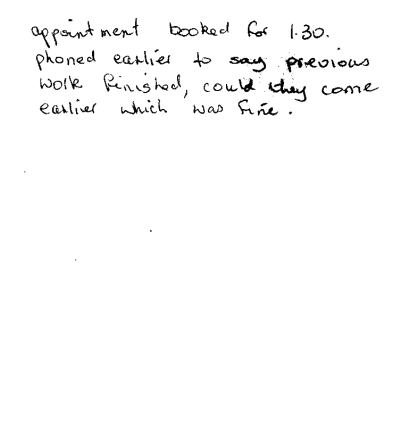 appointment booked for 1.30.
phoned earlier to say previous
work finished, could they come
earlier which was fine.